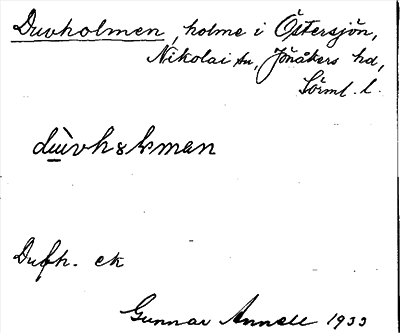 Duvholmen, holme i Östersjön,
Nikolai sn, Jönåkers hd,
Sörml. l.
Dufh. ek
Gunnar Annell 1933